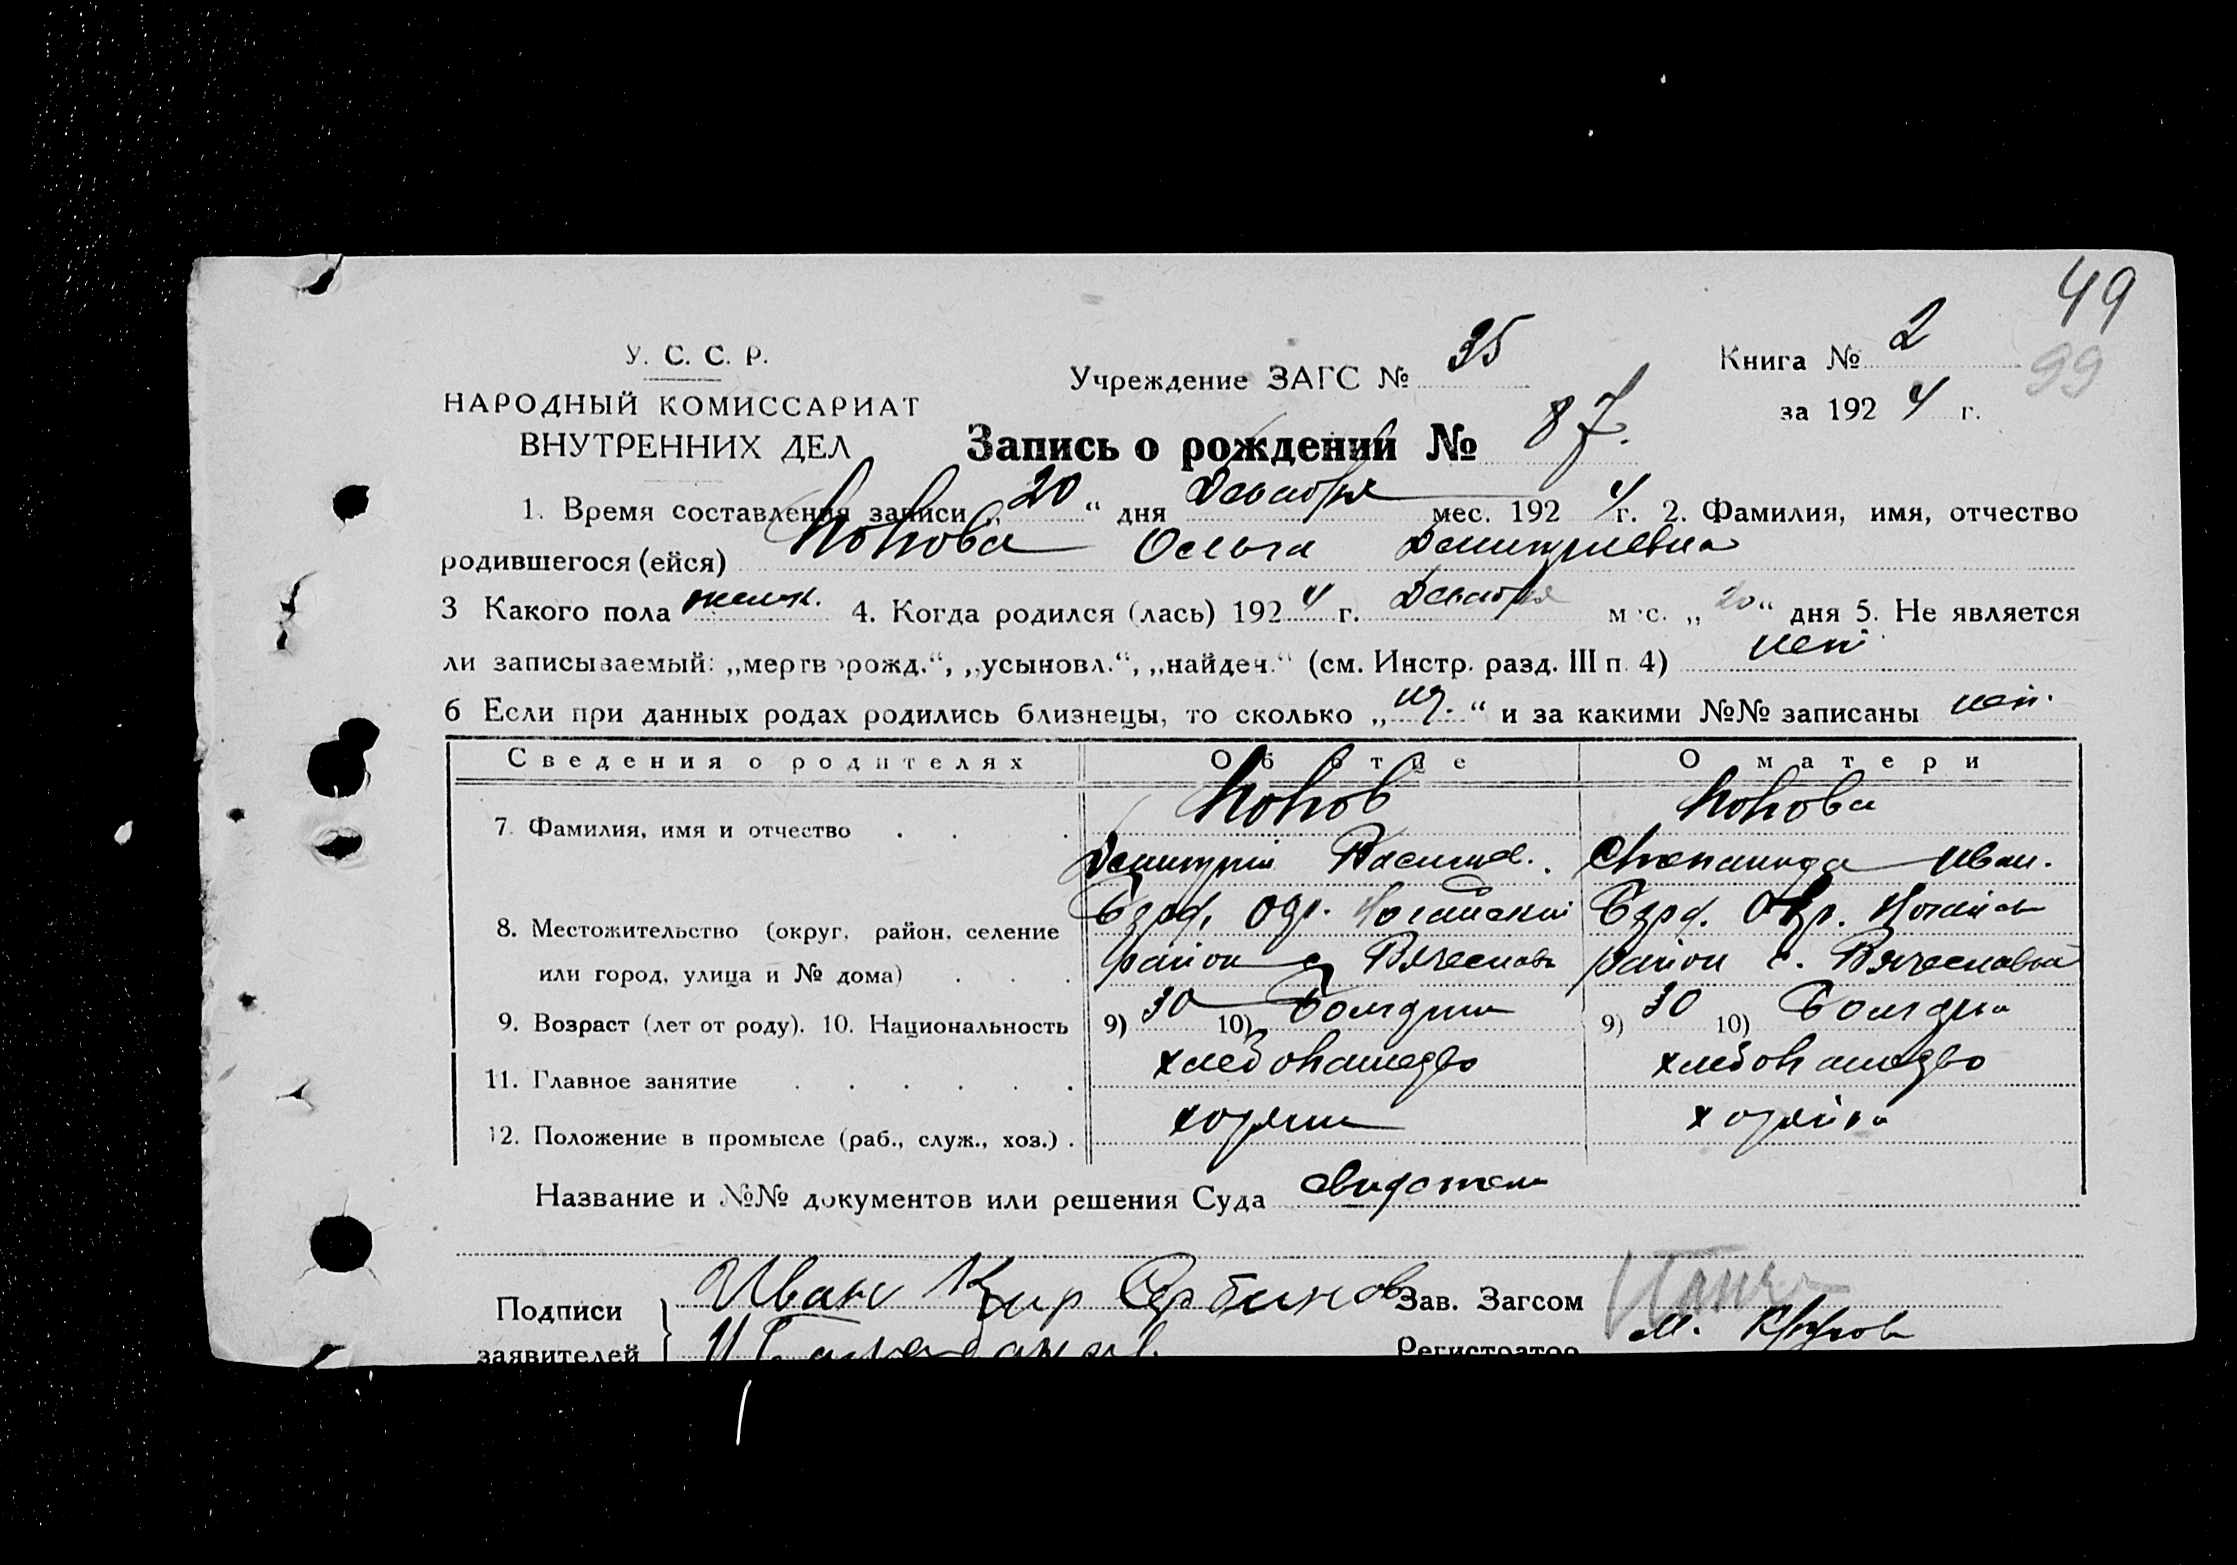 49
У. С. С. Р.
Учреждение ЗАГС № 35
Книга № 2
99
НАРОДНЫЙ КОМИССАРИАТ
за 1924 г.
ВНУТРЕННИХ ДЕЛ
Запись о рождении № 87.
1. Время составления записи „20“ дня Декабря мес. 1924 г. 2. Фамилия, имя, отчество
родившегося (ейся) Попова Ольга Димитриевна
3 Какого пола женск. 4. Когда родился (лась) 1924 г. Декабря мес. „20“ дня 5. Не является
ли записываемый: „мертворожд.“, „усыновл.“, „найден.“ (см. Инстр. разд. III п. 4) нет
6 Если при данных родах родились близнецы, то сколько „“ и за какими №№ записаны нет.
Сведения о родителях Об отце О матери
7. Фамилия, имя и отчество Попов Попова
Димитрий Василив. Степанида Иван.
8. Местожительство (округ, район, селение Бэрд. Окр. Ногайский Бэрд. Окр. Ногайск
или город, улица и № дома) район с Вячеславк район с. Вячеславка
9. Возраст (лет от роду). 10. Национальность 9) 30 10) Болгарин 9) 30 10) Болгарка
11. Главное занятие хлебопашедво хлебопашедво
12. Положение в промысле (раб., служ., хоз.) хозяин хозяйка
Название и №№ документов или решения Суда
Подписи Иван Кир Сербинов Зав. Загсом
заявителей Регистратор М.